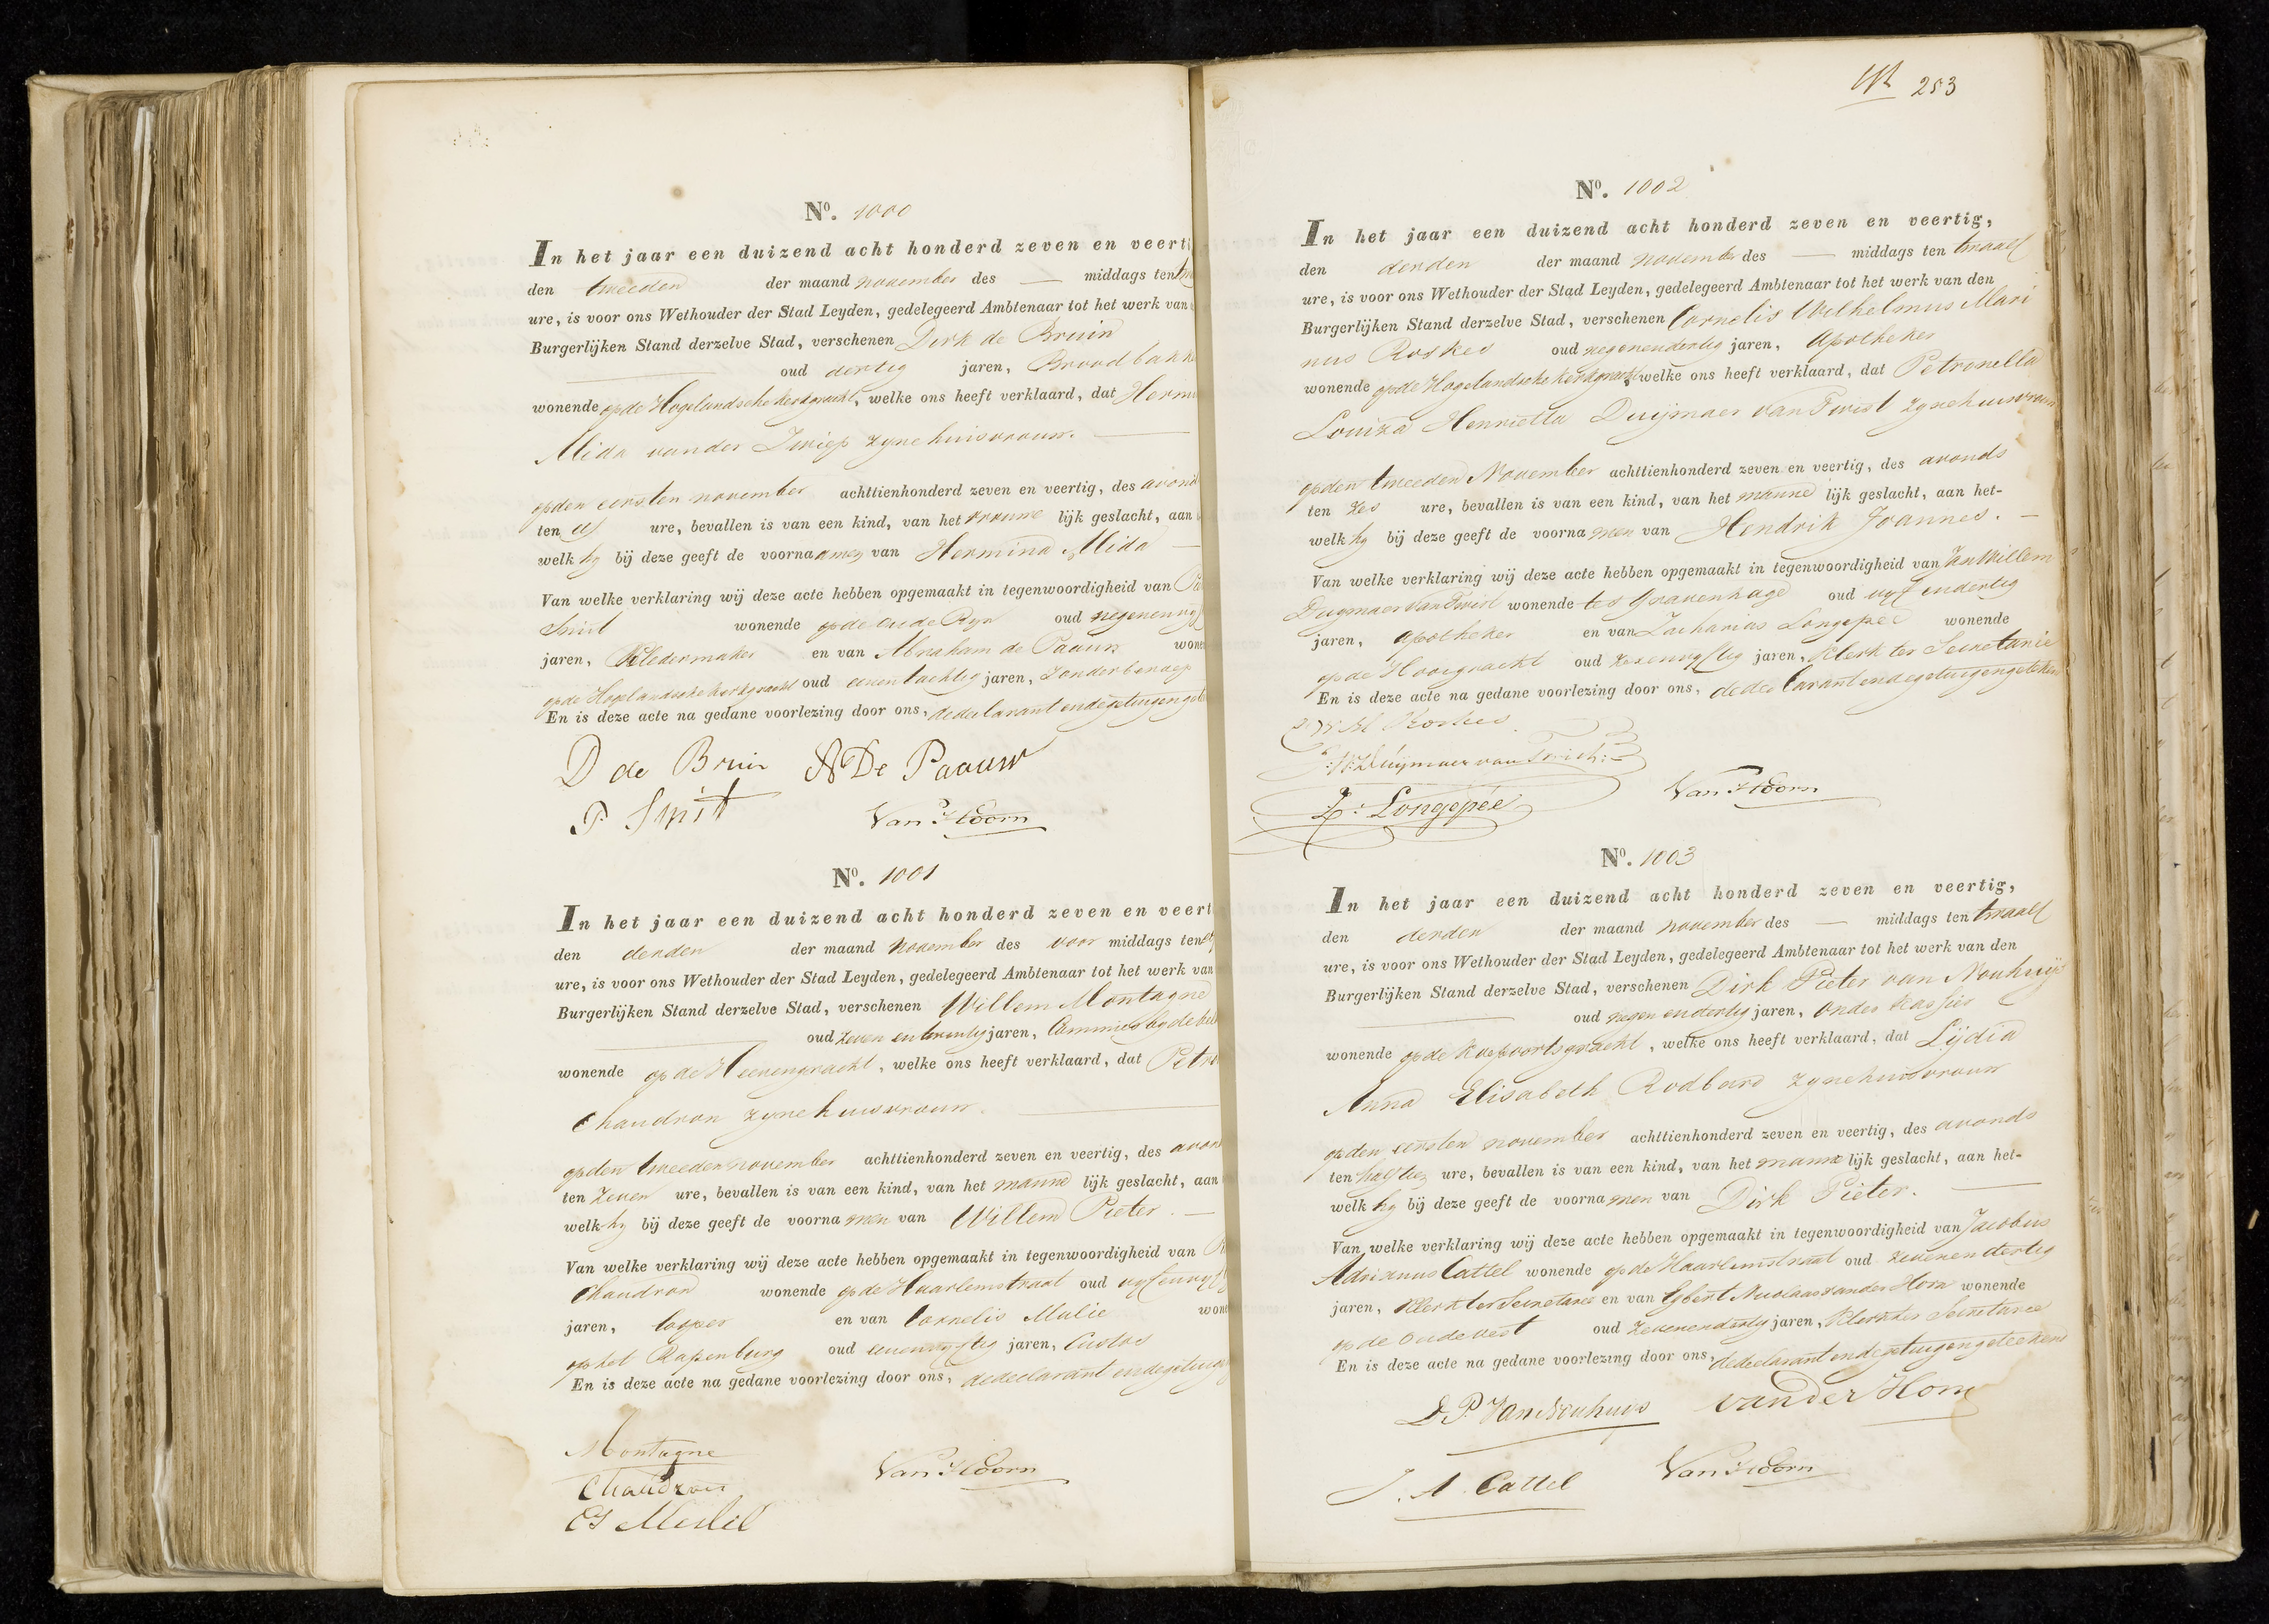 Nº. 1000
In het jaar een duizend acht honderd zeven en veerti
den tweeden der maand november des — middags ten
ure, is voor ons Wethouder der Stad Leyden, gedelegeerd Ambtenaar tot het werk van
Burgerlijken Stand derzelve Stad, verschenen Dirk de Bruin
oud dertig jaren, Broodbakk
wonende op de Hogelandsche kerkgracht, welke ons heeft verklaard, dat Herm
Alida van der Zwiep zyne huisvrouw.
op den eersten november achttienhonderd zeven en veertig, des avond
ten elf ure, bevallen is van een kind, van het vrouwe lijk geslacht, aan
welk hy bij deze geeft de voornaamen van Hermina Alida
Van welke verklaring wij deze acte hebben opgemaakt in tegenwoordigheid van
Smit wonende op de oude Ryn oud negenenvyf
jaren, Kledermaker en van Abraham de Paauw wone
op de Hogelandsche kerkgracht oud eenentachtig jaren, zonder beroep
En is deze acte na gedane voorlezing door ons, de declarant en de getuigen
D de Bruin A De Paauw
P. Smit Van Hoorn
Nº. 1001
In het jaar een duizend acht honderd zeven en veert
den derden der maand november des voor middags ten elf
ure, is voor ons Wethouder der Stad Leyden, gedelegeerd Ambtenaar tot het werk van
Burgerlijken Stand derzelve Stad, verschenen Willem Montagne
oud zeven en twintig jaren, Commies by de
wonende op de Heerengracht, welke ons heeft verklaard, dat Petro
Chaudron zyne huisvrouw.
op den tweeden november achttienhonderd zeven en veertig, des avon
ten zeven ure, bevallen is van een kind, van het manne lijk geslacht, aan
welk hy bij deze geeft de voornamen van Willem Pieter.
Van welke verklaring wij deze acte hebben opgemaakt in tegenwoordigheid van
Chaudron wonende op de Haarlemstraat oud vyfenvyft
jaren, looper en van Cornelis Mulie wone
op het Rapenburg oud eenenvyftig jaren, Custos
En is deze acte na gedane voorlezing door ons, de declarant en de getuig
Montagne
Chaudron Van Hoorn
Nº. 1002
253
In het jaar een duizend acht honderd zeven en veertig,
den derden der maand november des — middags ten twaalf
ure, is voor ons Wethouder der Stad Leyden, gedelegeerd Ambtenaar tot het werk van den
Burgerlijken Stand derzelve Stad, verschenen Cornelis Wilhelmus Mari
nus Roskes oud negenendertig jaren, Apotheker
wonende op de Hogelandsche kerkgracht welke ons heeft verklaard, dat Petronella
Louiza Henrietta Duijmaer van Twist zyne huisvrouw
op den tweeden November achttienhonderd zeven en veertig, des avonds
ten zes ure, bevallen is van een kind, van het manne lijk geslacht, aan het-
welk hy bij deze geeft de voornamen van Hendrik Joannes. —
Van welke verklaring wij deze acte hebben opgemaakt in tegenwoordigheid van Jan Willem
Duijmaer van Twist wonende te 's Gravenhage oud vyf en dertig
jaren, Apotheker en van Zacharias Longepée wonende
op de Hooigracht oud zesenvyftig jaren, Klerk ter Secretarie
En is deze acte na gedane voorlezing door ons, de declarant en de getuigen geteken
C W M Roskes
J: W: Duijmaer van Twist:
Z: Longepée Van Hoorn
Nº. 1003
In het jaar een duizend acht honderd zeven en veertig,
den derden der maand november des — middags ten twaalf
ure, is voor ons Wethouder der Stad Leyden, gedelegeerd Ambtenaar tot het werk van den
Burgerlijken Stand derzelve Stad, verschenen Dirk Pieter van Nouhuijs
oud negen en dertig jaren, Onder Kassier
wonende op de Koepoortsgracht, welke ons heeft verklaard, dat Lydia
Anna Elisabeth Rodbard zyne huisvrouw
op den eersten november achttienhonderd zeven en veertig, des avonds
ten half tien ure, bevallen is van een kind, van het manne lijk geslacht, aan het-
welk hy bij deze geeft de voornamen van Dirk Pieter. —
Van welke verklaring wij deze acte hebben opgemaakt in tegenwoordigheid van Jacobus
Adrianus Cattel wonende op de Haarlemstraat oud zevenendertig
jaren, Klerk ter Secretarie en van Egbert Nicolaas van der Horn wonende
op de oude vest oud zevenendertig jaren, Klerk ter Secretarie
En is deze acte na gedane voorlezing door ons, de declarant en de getuigen geteekend
D. P. Van Nouhuis van der Horn
J. A. Cattel Van Hoorn